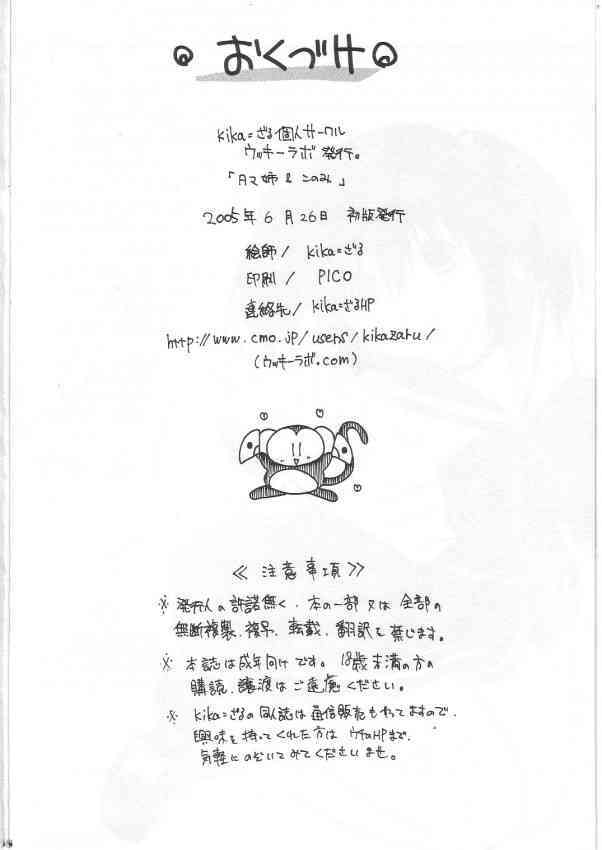 おくづけ
kika=ざる個人サークル
ウッキーラボ 発行。
「タマ姉 & このみ」
2005年 6月 26日 初版発行
絵師/ kika=ざる
印刷/ PICO
連絡先/ kika=ざるHP
http://www.cmo.jp/users/kikazaru/
(ウッキーラボ.com)
≪ 注意事項 ≫
※ 発行人の許諾無く、本の一部又は全部の
無断複製、複写、転載、翻訳を禁じます。
※ 本誌は成年向けです。18歳未満の方の
購読、譲渡はご遠慮ください。
※ kika=ざるの同人誌は通信販売もやってますので、
興味を持ってくれた方は ウチのHPまで、
気軽にのぞいてみてくださいませ。